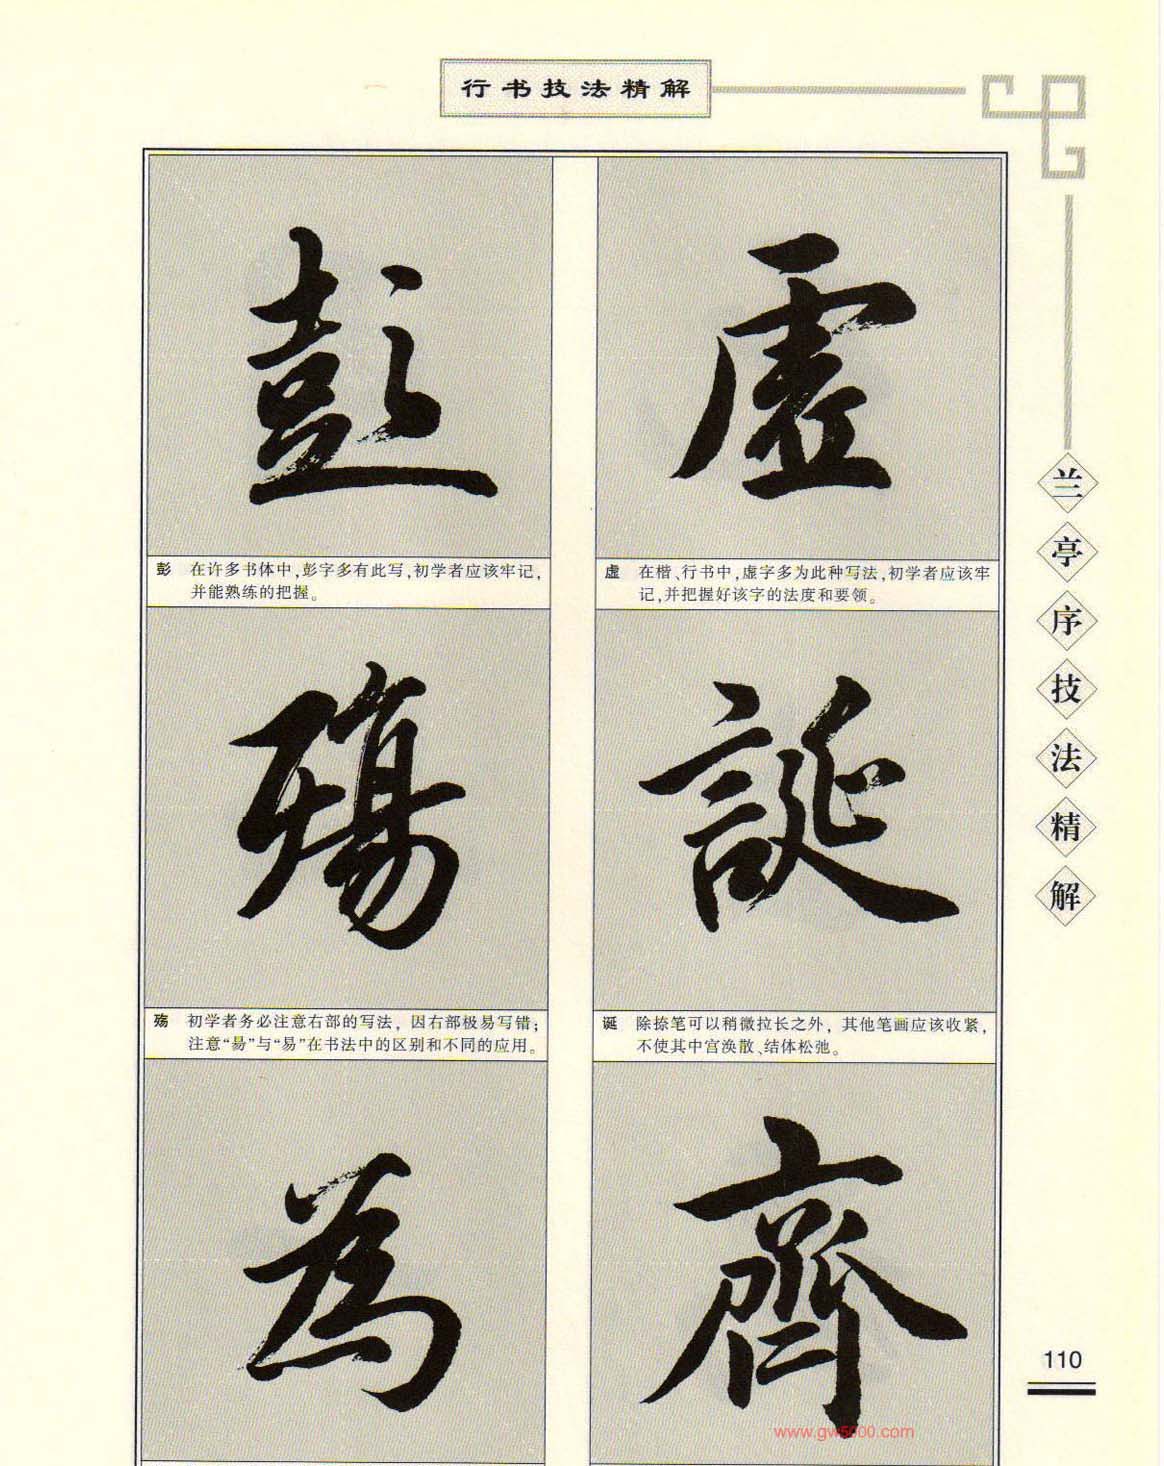 行书技法精解
虚
彭
虚 在楷、行书中,虚字多为此种写法,初学者应该牢
记,并把握好该字的法度和要领。
彭 在许多书体中,彭字多有此写,初学者应该牢记,
并能熟练的把握。
誕
殤
诞 除捺笔可以稍微拉长之外，其他笔画应该收紧，
不使其中宫涣散、结体松弛。
殇 初学者务必注意右部的写法，因右部极易写错；
注意“昜”与“易”在书法中的区别和不同的应用。
齊
為
兰亭序技法精解
110
www.gw5000.com